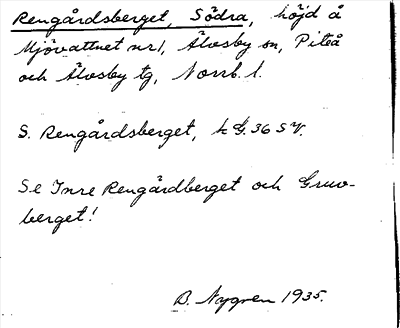 Rengårdsberget, Södra, höjd å
Mjövattnet nr 1, Älvsby sn, Piteå
och Älvsby tg, Norrb. l.
S. Rengårdsberget, k G. 36 SV.
Se Inre Rengårdberget och Gruv-
berget!
B. Nygren 1935.